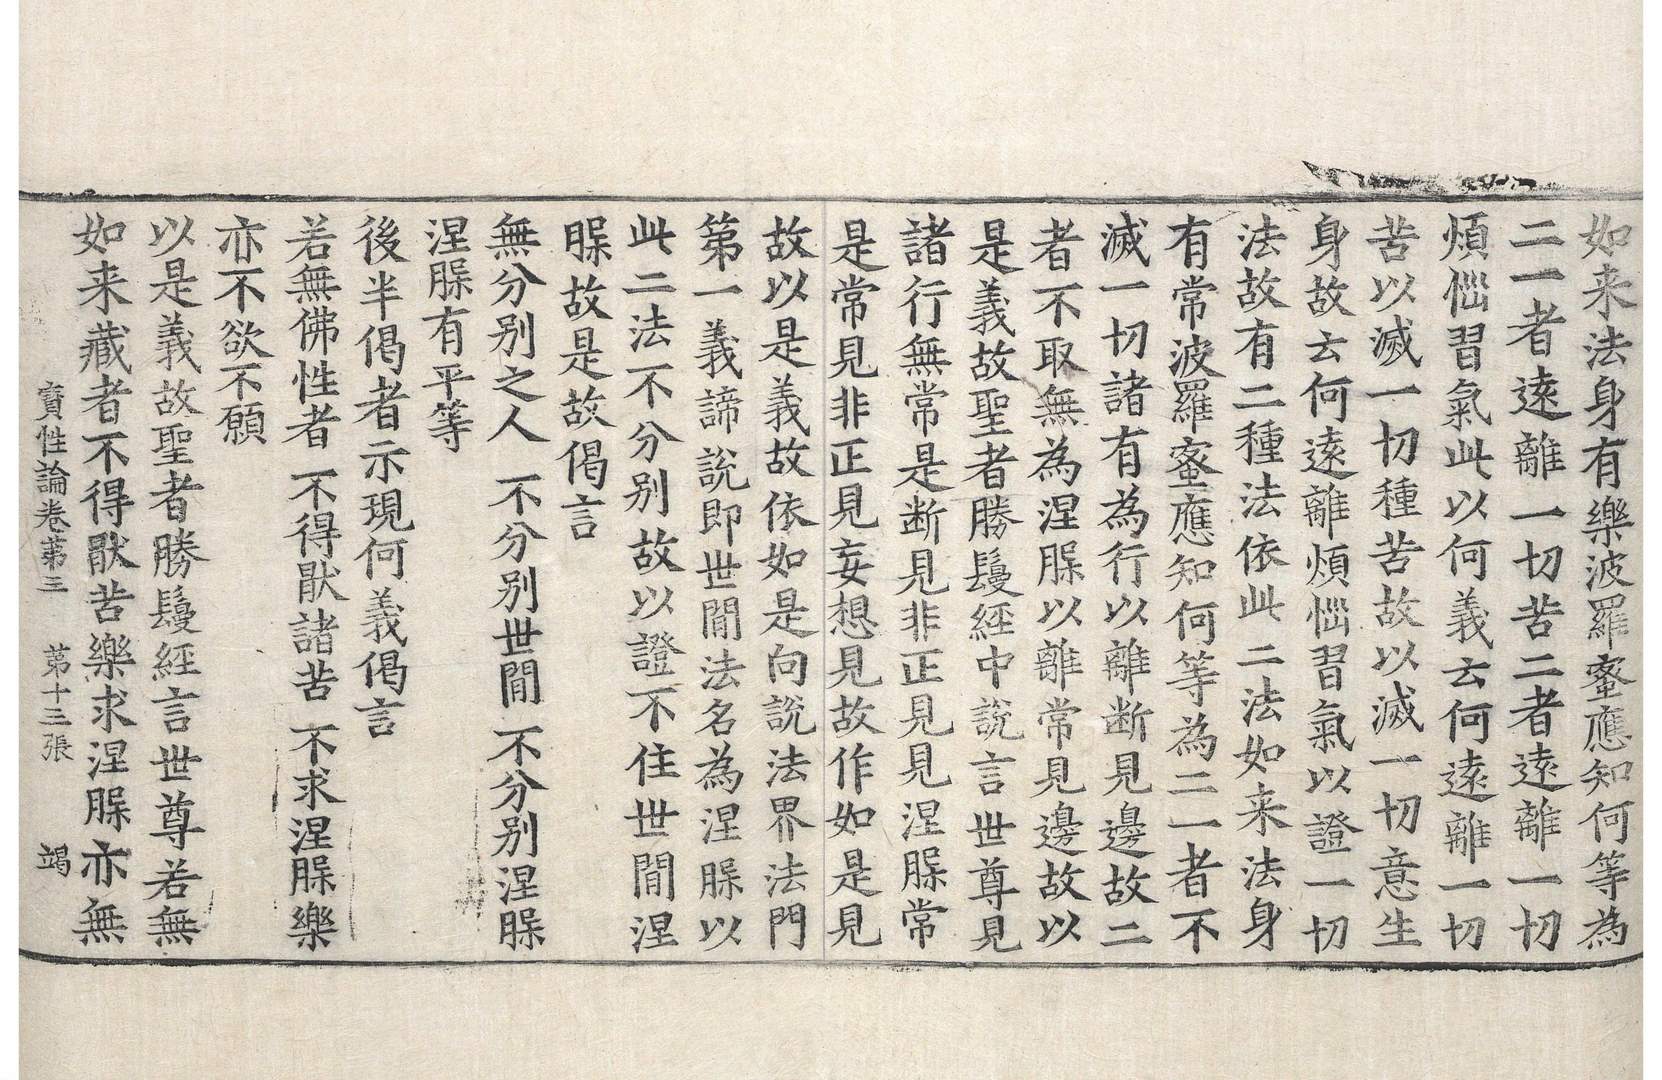 如来法身有樂波羅蜜應知何等為
二一者遠離一切苦二者遠離一切
煩惱習氣此以何義云何遠離一切
苦以滅一切種苦故以滅一切意生
身故云何遠離煩惱習氣以證一切
法故有二種法依此二法如来法身
有常波羅蜜應知何等為二一者不
滅一切諸有為行以離断見邊故二
者不取無為涅槃以離常見邊故以
是義故聖者勝鬘經中說言世尊見
諸行無常是断見非正見見涅槃常
是常見非正見妄想見故作如是見
故以是義故依如是向說法界法門
第一義諦說即世間法名為涅槃以
此二法不分别故以證不住世間涅
槃故是故偈言
無分别之人 不分别世間 不分别涅槃
涅槃有平等
後半偈者示現何義偈言
若無佛性者 不得猒諸苦 不求涅槃樂
亦不欲不願
以是義故聖者勝鬘經言世尊若無
如来藏者不得猒苦樂求涅槃亦無
寶性論卷第三 第十三張 竭